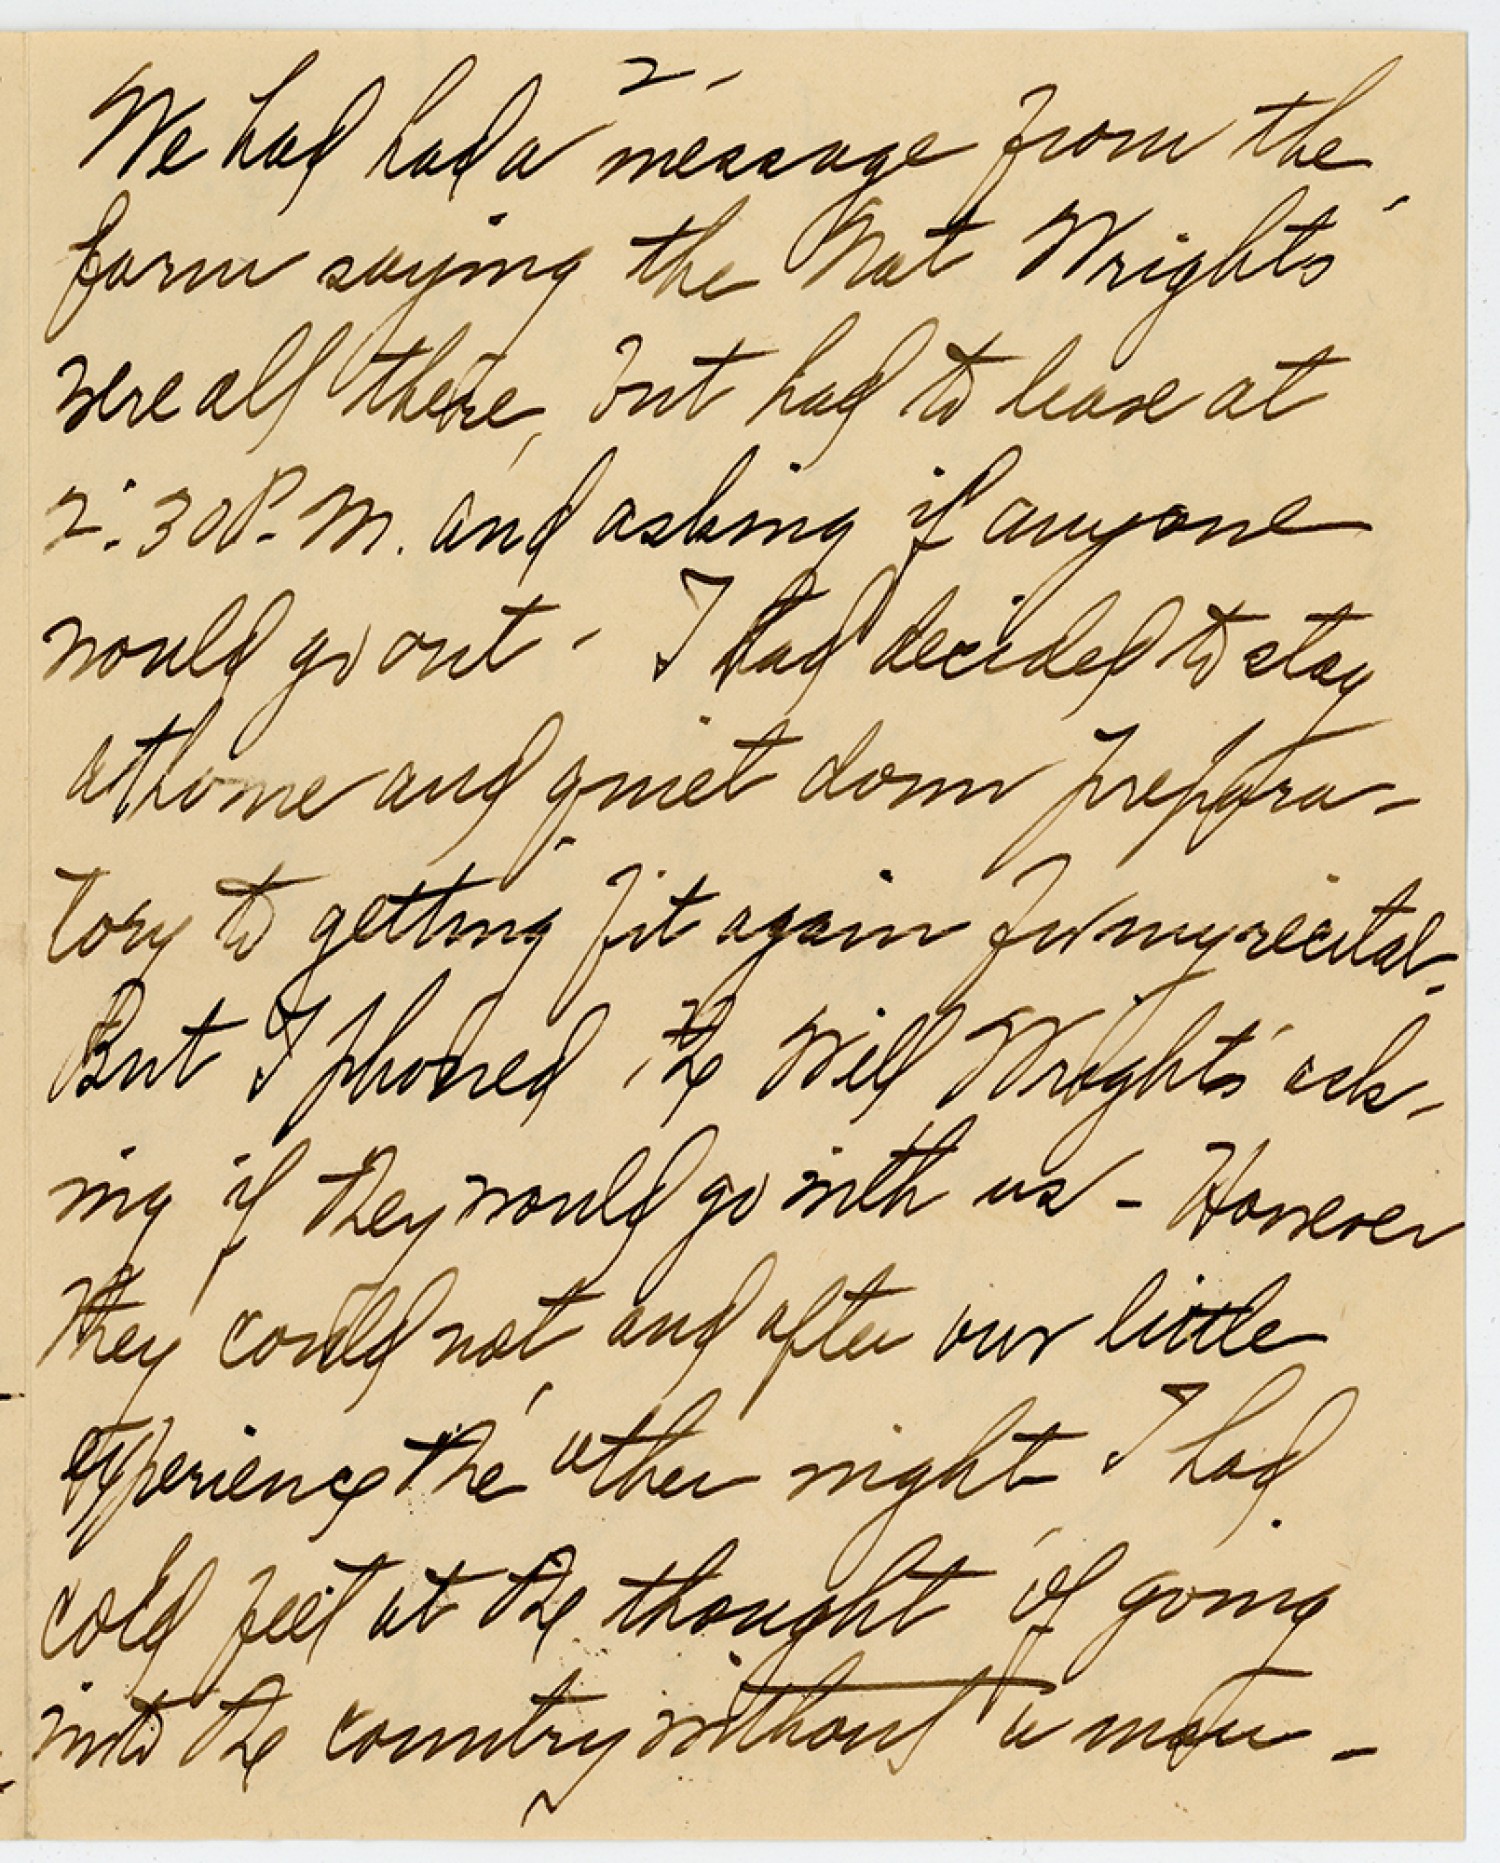 2-
We had had a message from the
farm saying the Nat Wrights'
were all there, but had to leave at
2:30 P.M. and asking if anyone
would go out - I had decided to stay
at home and quiet down prepara-
tory to getting fit again for my recital.
But I phoned the Will Wrights' ask-
ing if they would go with us - However
they could not, and after our little
experience the other night I had
cold feet at the thought of going
into the country without a man -